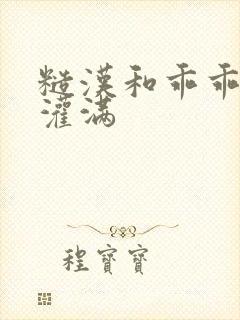 糙漢和乖乖
灌满
程寶寶